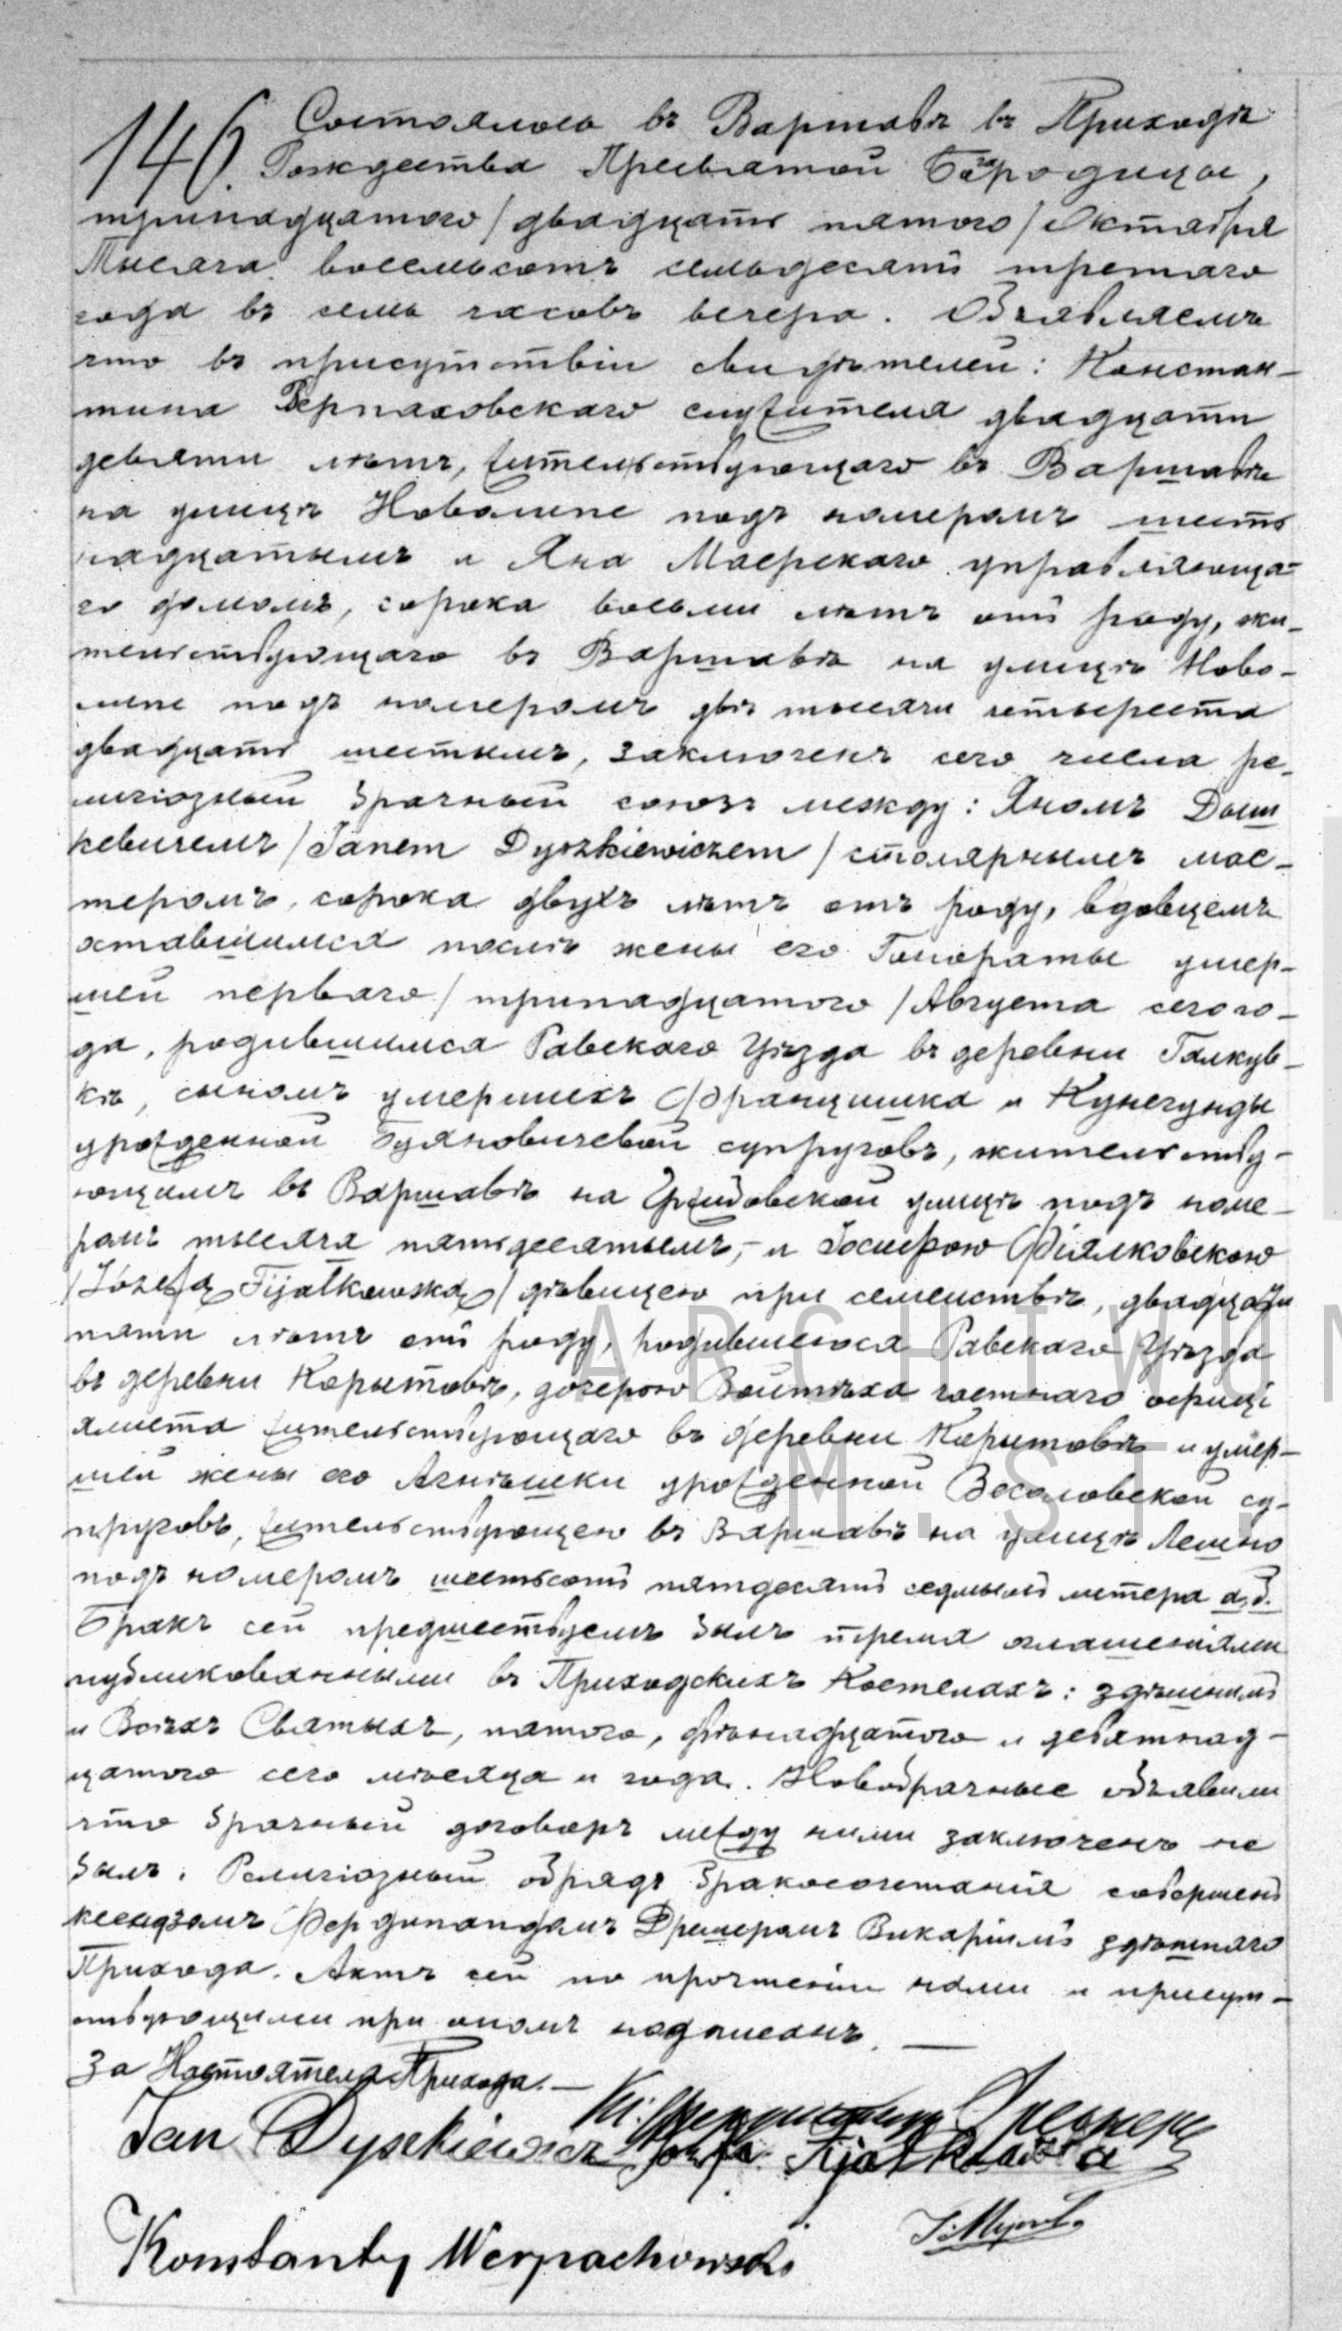 146. Состоялось въ Варшавѣ въ Приходѣ
Рождества Пресвятой Богородицы,
тринадцатого/двадцать пятого/Октября
Тысяча восемьсотъ семьдесятъ третаго
года въ семь часовъ вечера. Объявляемъ
что въ присутствіи свидѣтелей: Констан-
тина Верпаховскаго служителя двадцати
девяти лѣтъ, жительствующаго въ Варшавѣ
на улицѣ Новолипе подъ номеромъ шест
надцатымъ и Яна Маерскаго управляюща-
го домомъ, сорока восьми лѣтъ отъ роду, жи-
тельствующаго въ Варшавѣ на улицѣ Ново-
липе подъ номеромъ двѣ тысячи четыреста
двадцать шестымъ, заключенъ сего числа ре-
лигіозный брачный союзъ между: Яномъ Дыш
кевичемъ/Janem Dyszkiewiczem/столярнымъ мас-
теромъ, сорока двухъ лѣтъ отъ роду, вдовцемъ
оставшимся послѣ жены его Гонораты умер-
шей перваго/тринадцатого/Августа сего го-
да, родившимся Равскаго Уѣзда въ деревни Галкув-
кѣ, сыномъ умершихъ Францишка и Кунегунды
урожденной супруговъ, жительству-
ющимъ въ Варшавѣ на Гржибовской улицѣ подъ номе-
ромъ тысяча пятьдесятымъ, - и Іосифою Фіялковскою
/Józefą Fijałkowską/дѣвицею при семействѣ, двадцати
пяти лѣтъ отъ роду, родившеюся Равскаго Уѣзда
въ деревни Корытовѣ, дочерою Войтѣха частнаго официі
ялиста жительствующаго въ деревни Корытовѣ и умер-
шей жены его Агнѣшки урожденной Весоловской су-
пруговъ, жительствующею въ Варшавѣ на улицѣ Лешно
подъ номеромъ шестьсотъ пятдесятъ седмымъ литера а,б.
Бракъ сей предшествуемъ былъ тремя оглашеніями
публикованными въ Приходскихъ Костелахъ: здѣшнимъ
и Всѣхъ Святыхъ, пятого, двѣнадцатого и девятнад-
цатого сего мѣсяца и года. Новобрачные объявили
что брачный договоръ между ними заключенъ не
былъ. Религіозный обрядъ бракосочетанія совершенъ
ксендзомъ Фердинандомъ Дрешеромъ Викаріимъ здѣшняго
Прихода. Актъ сей по прочтеніи нами и присут-
ствующими при ономъ подписанъ. —
За Настоятеля Прихода. —
Кс. Фердинандъ Дрешеръ
Jan Dyszkiewicz Józefa Fijałkowska
Konstanty Werpachowski
ARCHIWUM
M. ST.